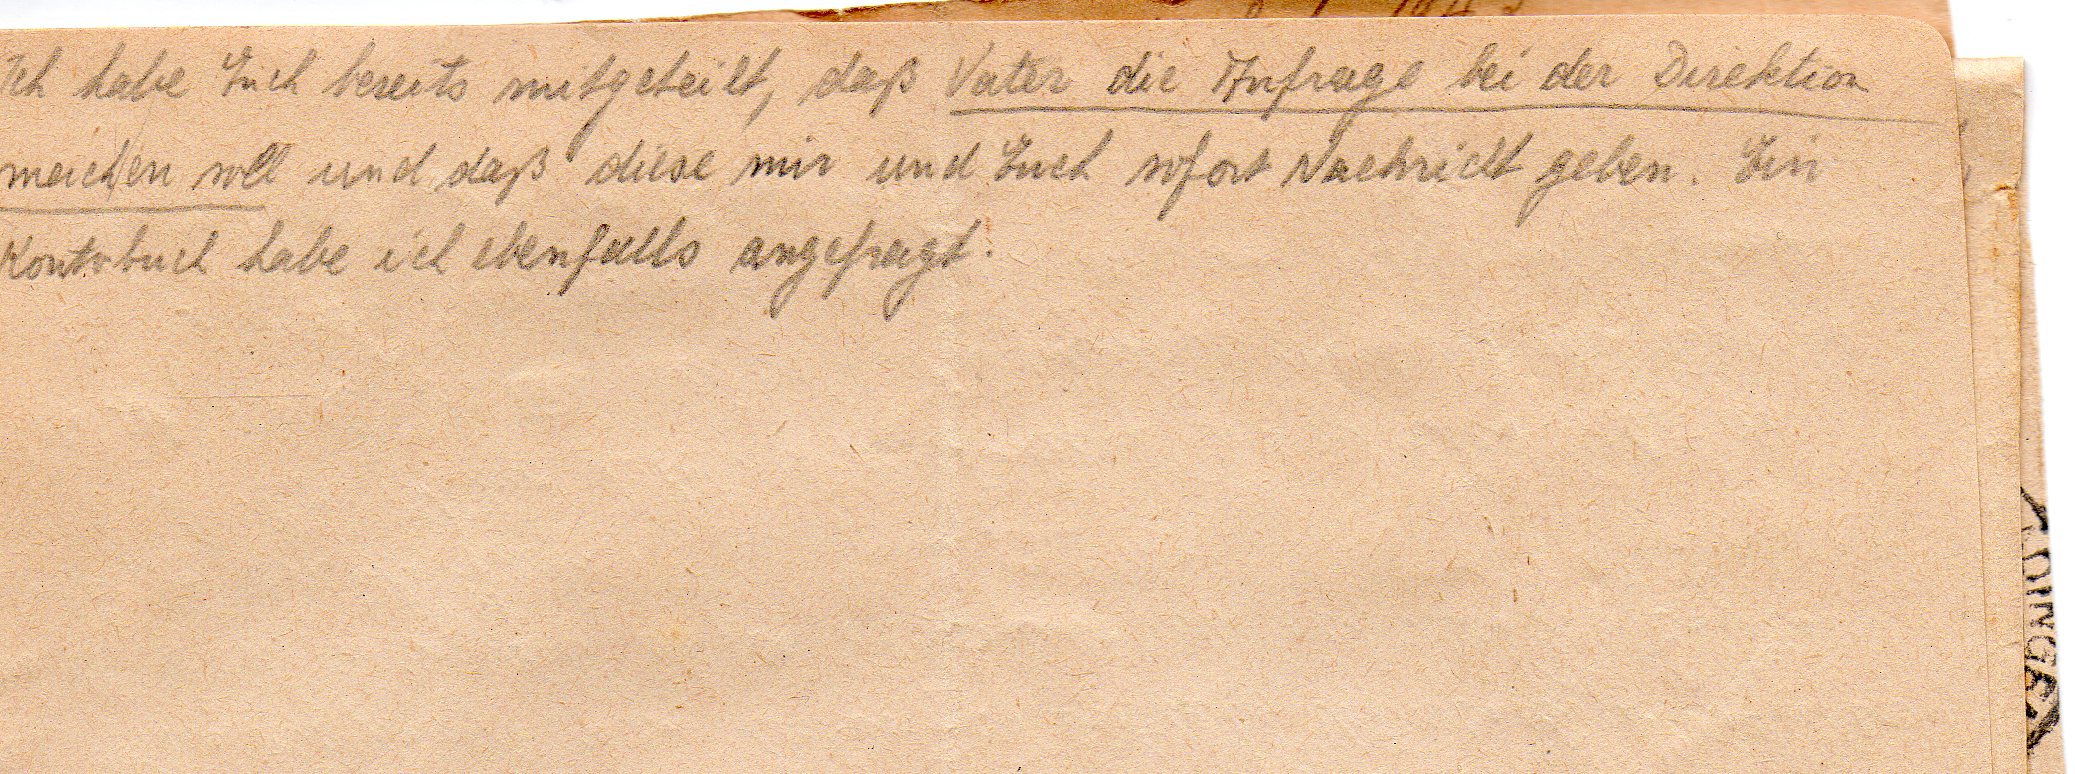 Ich habe Euch bereits mitgeteilt, daß Vater die Anfrage bei der Direktion
machen soll und daß diese mir und Euch sofort Nachricht geben. Ein
Kontobuch habe ich ebenfalls angefragt.
DINGEN